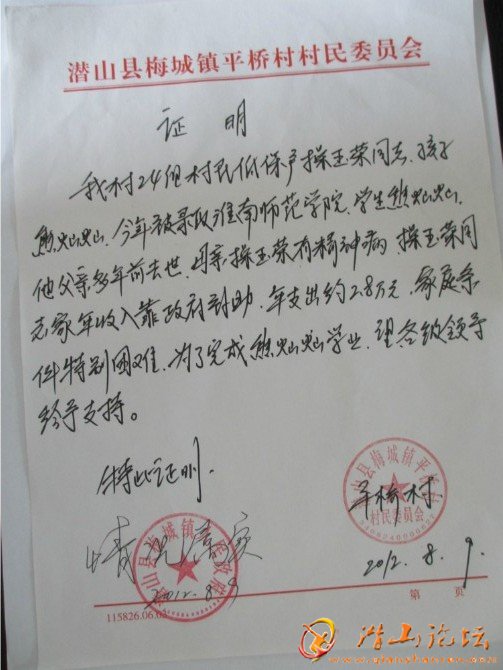 潜山县梅城镇平桥村村民委员会
证 明
我村24组村民低保户操玉荣同志、孩子
熊灿灿、今年被录取淮南师范学院、学生熊灿灿、
他父亲多年前去世、母亲操玉荣有精神病、操玉荣同
志家年收入靠政府补助、年支出约2.8万元、家庭条
件特别困难、为了完成熊灿灿学业、望各级领导
给予支持。
特此证明.
平桥村
潜山县梅城镇平桥村
村民委员会
2012.8.9.
情况属实
2012.8.9
115826.06.62
第 页
潜山论坛